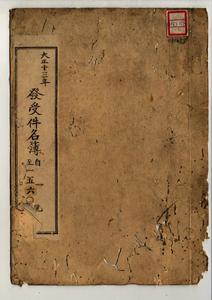 大正十三年
發受件名簿
自一
至一五六〇號